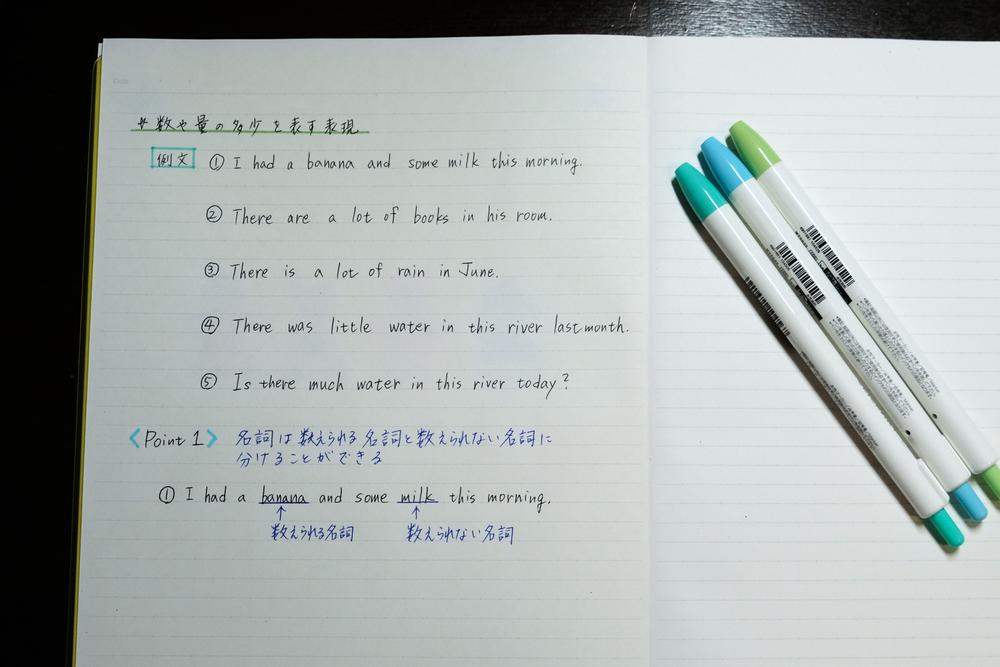 * 数や量の多少を表す表現
例文 ① I had a banana and some milk this morning.
② There are a lot of books in his room.
③ There is a lot of rain in June.
④ There was little water in this river last month.
⑤ Is there much water in this river today?
〈Point 1〉 名詞は数えられる名詞と数えられない名詞に
分けることができる
① I had a banana and some milk this morning.
↑ ↑
数えられる名詞 数えられない名詞